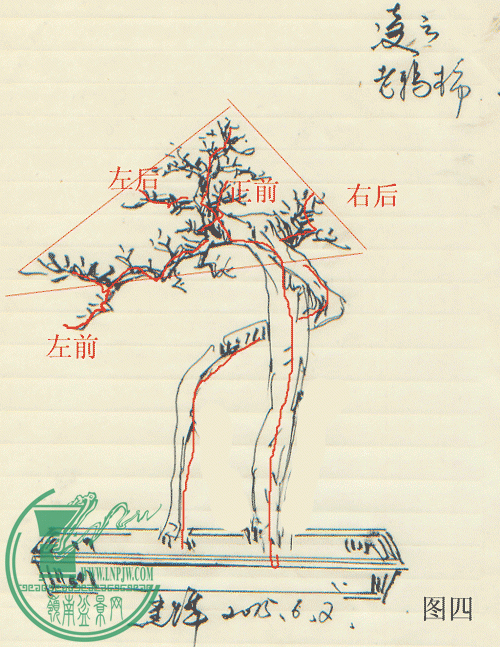 凌云
老鸦柿.
左后
正前
右后
左前
WWW.LNPJW.COM
岭南盆景网
2015.6.2.
图四